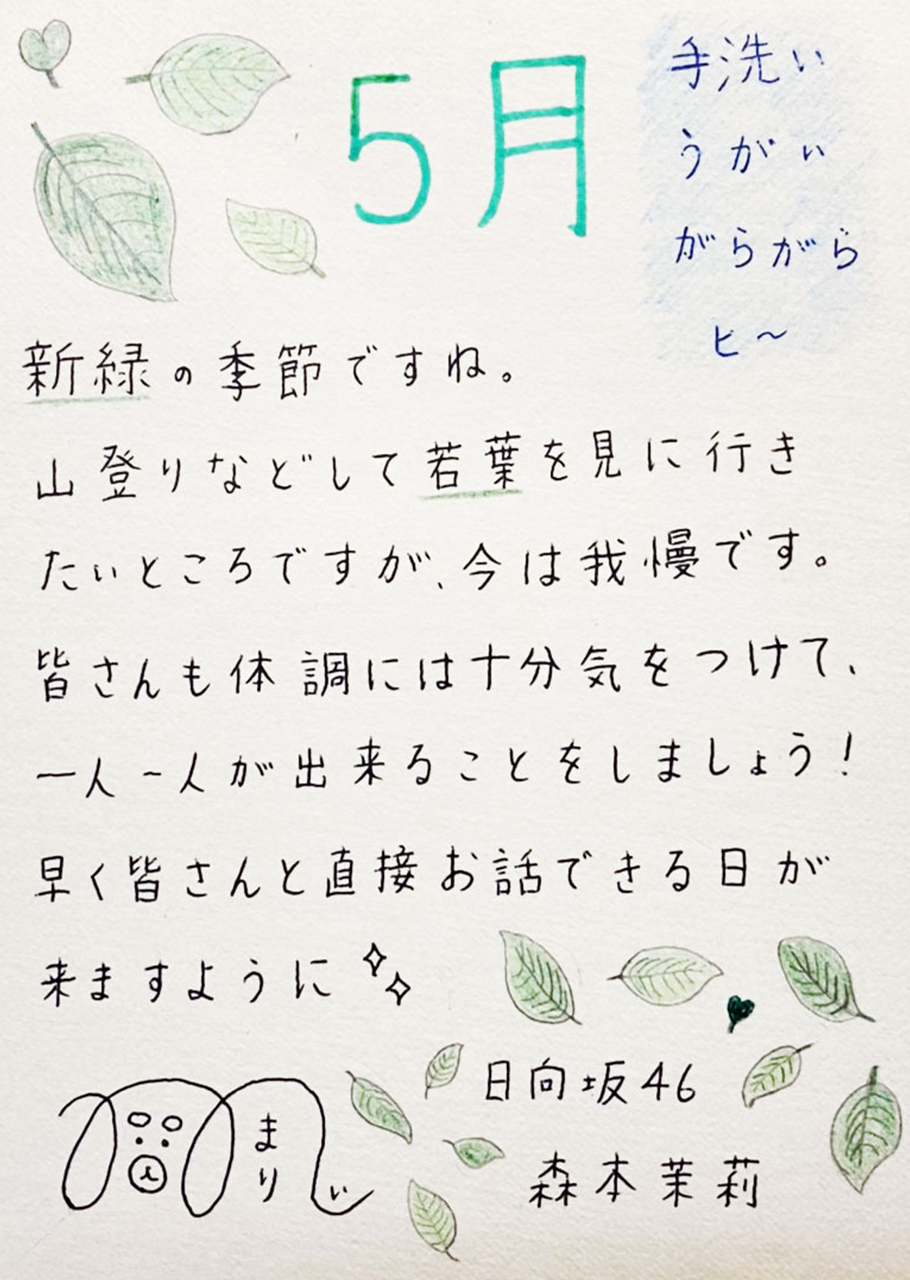 5月
手洗い
うがい
がらがら
ヒ〜
新緑の季節ですね。
山登りなどして若葉を見に行き
たいところですが、今は我慢です。
皆さんも体調には十分気をつけて、
一人一人が出来ることをしましょう!
早く皆さんと直接お話できる日が
来ますように
日向坂46
森本茉莉
まりぃ